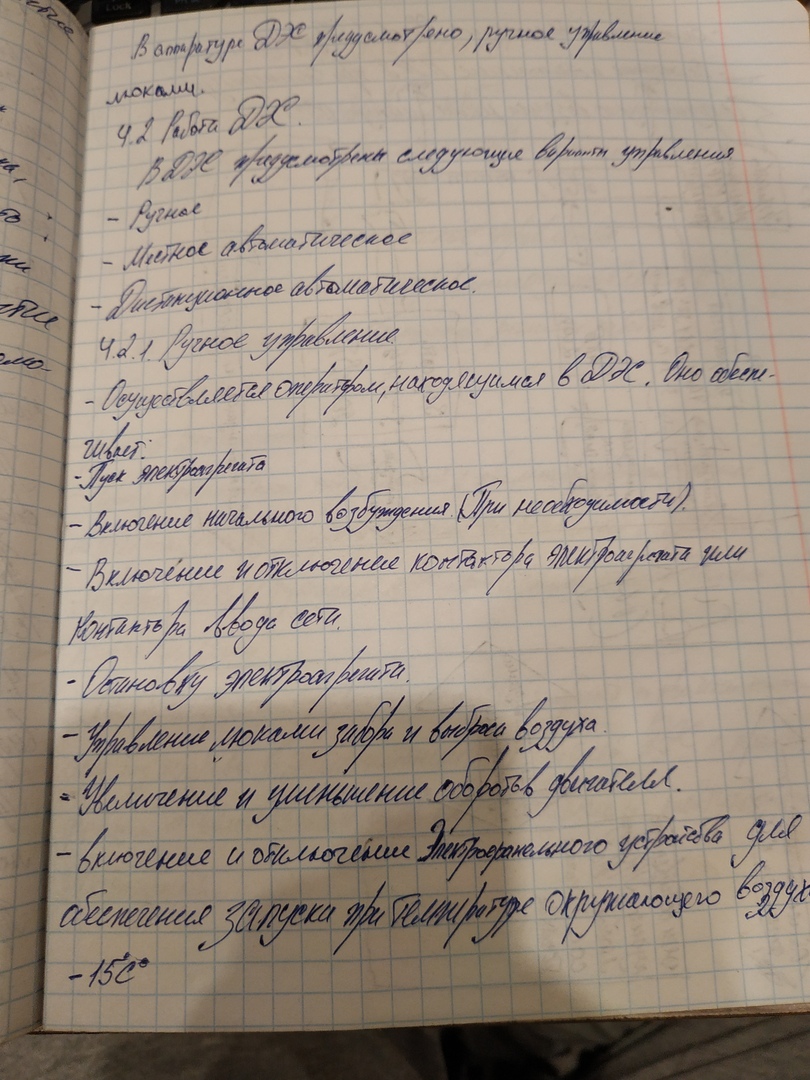 В аппаратуре ДЭС предусмотрено, ручное управление
люками.
4.2 Работа ДЭС.
В ДЭС предусмотрены следующие варианты управления
- Ручное
- Местное автоматическое
- Дистанционное автоматическое.
4.2.1 Ручное управление.
- Осуществляется оператором, находящимся в ДЭС. Оно обеспе-
чивает:
- Пуск электроагрегата
- Включение начального возбуждения (При необходимости).
- Включение и отключение контактора электроагрегата или
контактора ввода сети.
- Остановку электроагрегата.
- Управление люками забора и выброса воздуха.
- Увеличение и уменьшение оборотов двигателя.
- включение и отключение Электрофакельного устройства для
обеспечения запуска при температуре окружающего воздух
- 15°C°